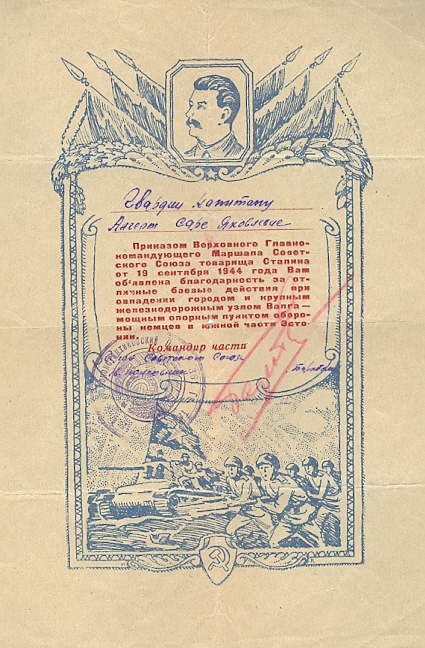 Гвардии капитану
Ангерт Саре Яковлевне
Приказом Верховного Главно-
командующего Маршала Совет-
ского Союза товарища Сталина
от 19 сентября 1944 года Вам
об'явлена благодарность за от-
личные боевые действия при
овладении городом и крупным
железнодорожным узлом Валга—
мощным опорным пунктом оборо-
ны немцев в южной части Эсто-
нии.
Командир части
Советского Союза